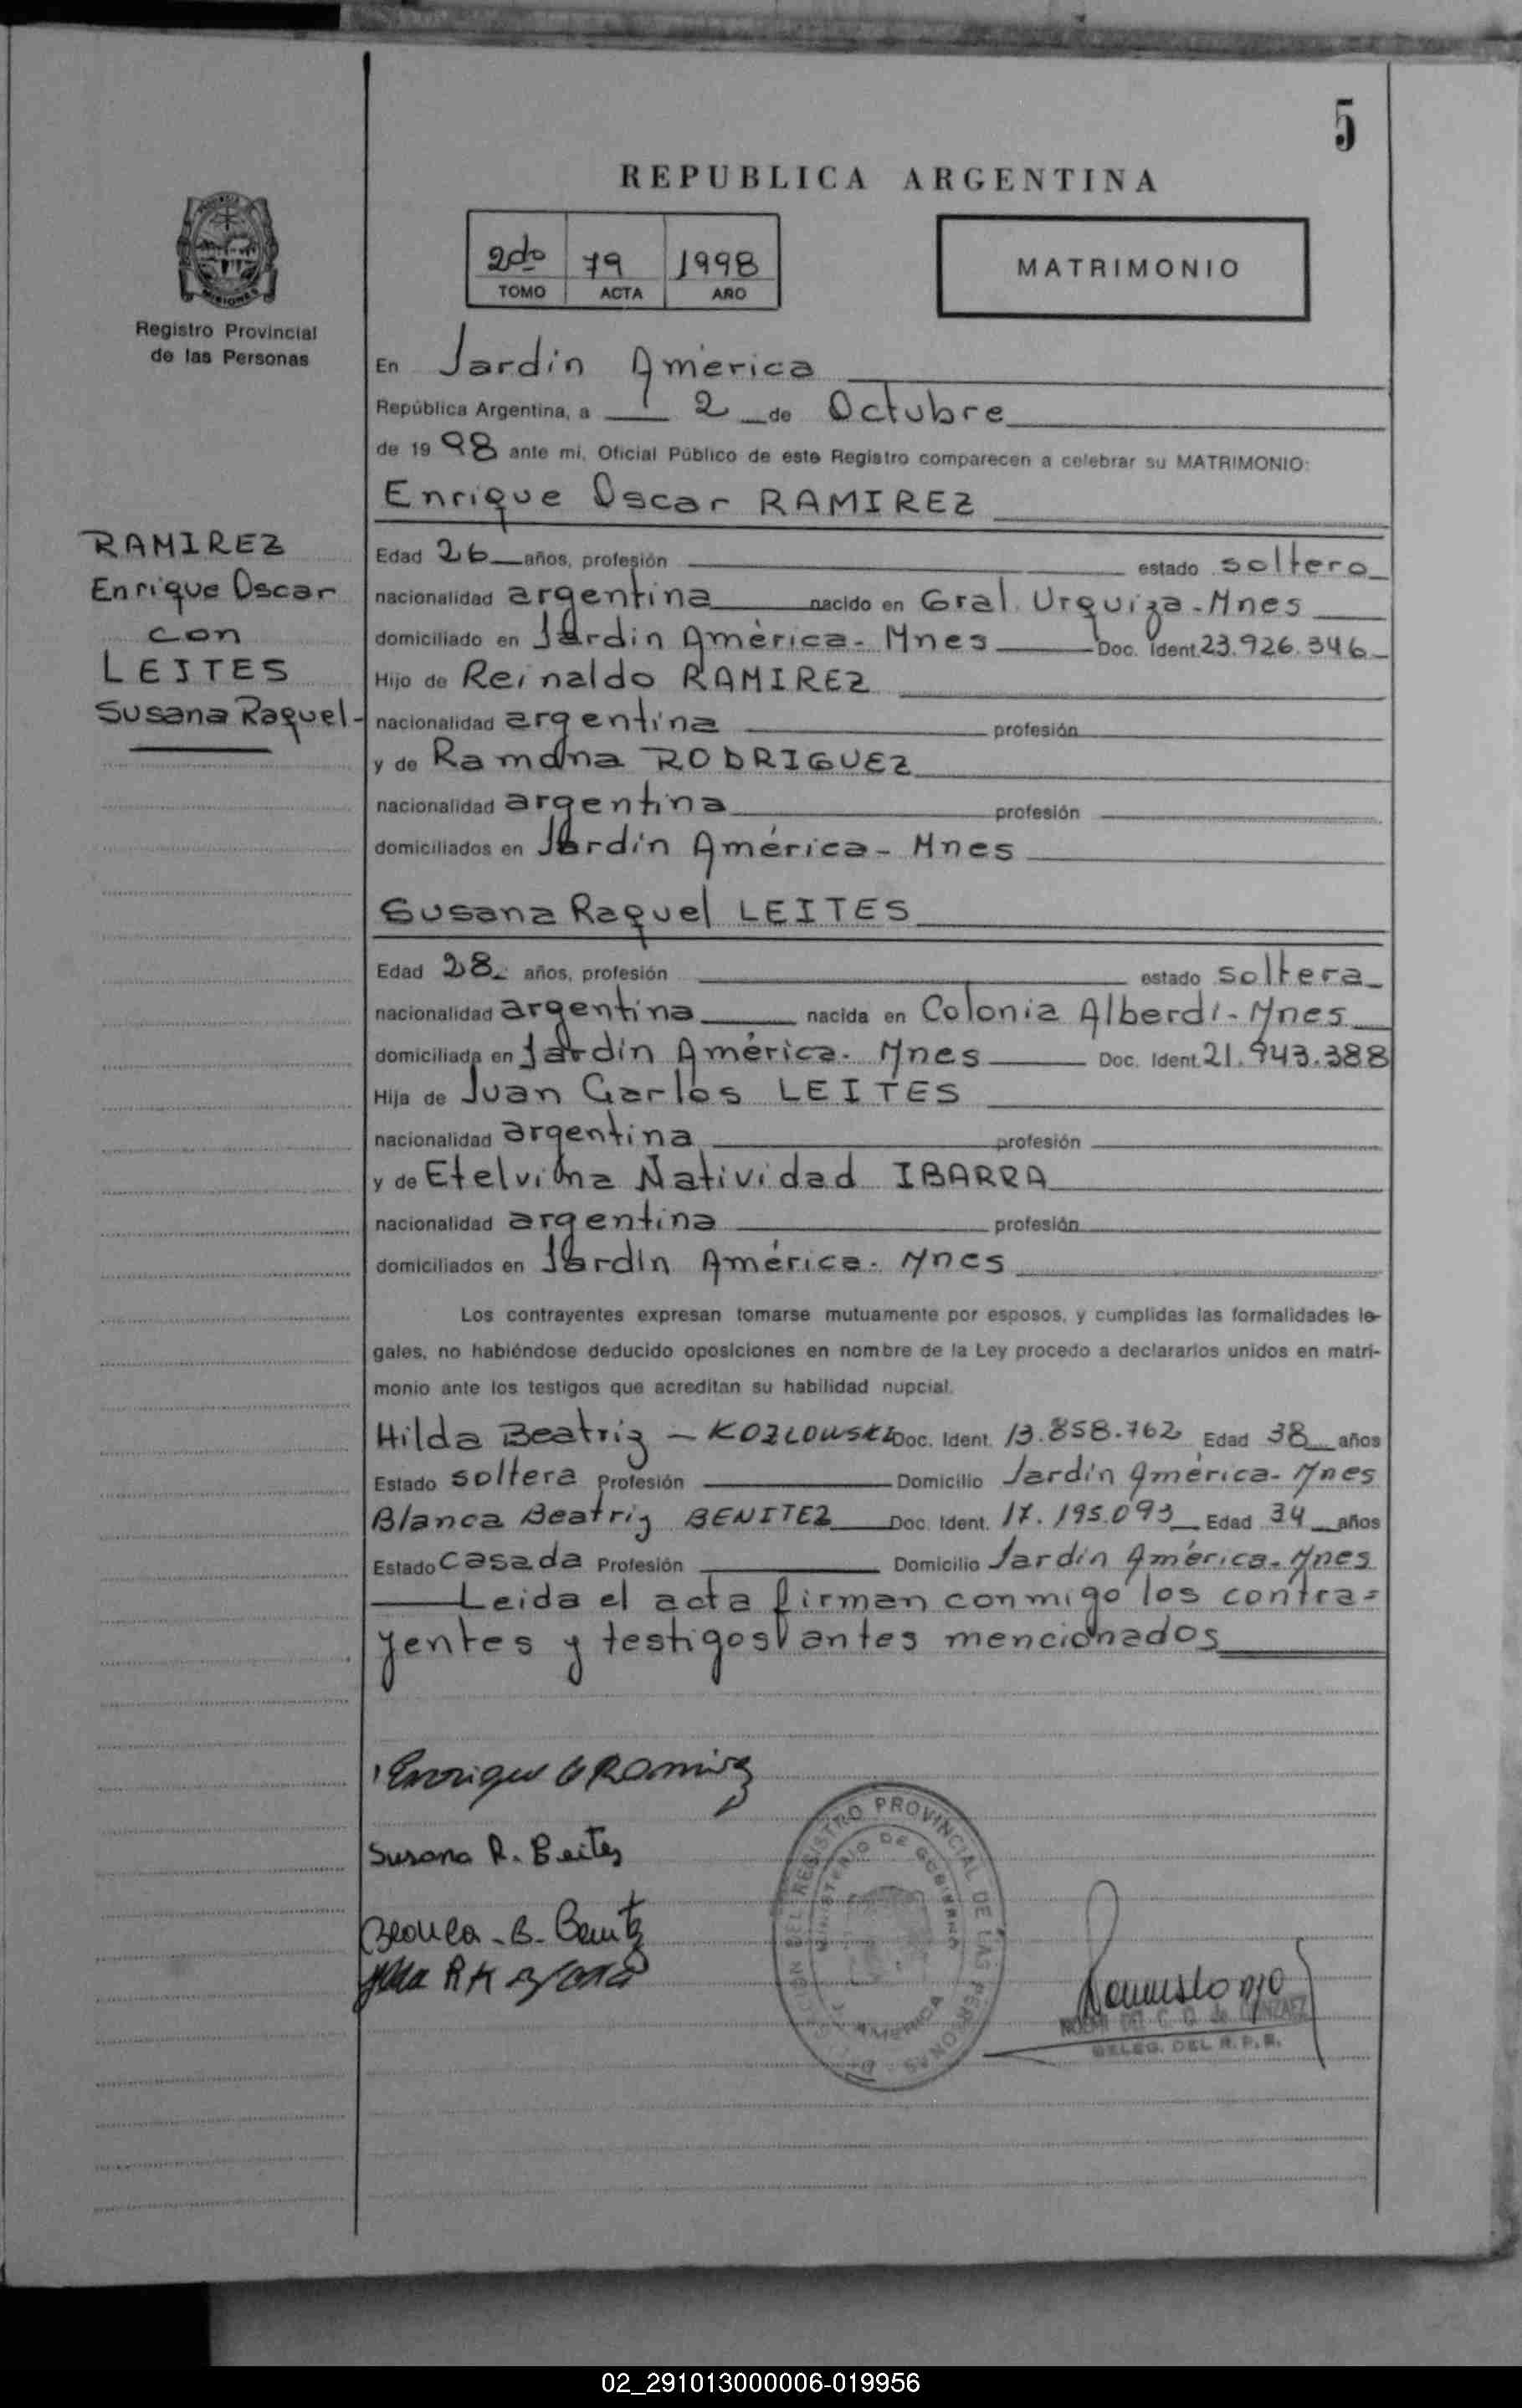 5
REPUBLICA ARGENTINA
2do 79 1998
TOMO ACTA AÑO
MATRIMONIO
Registro Provincial
de las Personas
En Jardín América
República Argentina, a 2 de Octubre
de 1998 ante mí, Oficial Público de este Registro comparecen a celebrar su MATRIMONIO:
Enrique Oscar RAMIREZ
RAMIREZ
Enrique Oscar
con
LEITES
Susana Raquel-
Edad 26 años, profesión estado soltero
nacionalidad argentina nacido en Gral. Urquiza-Mnes
domiciliado en Jardín América- Mnes Doc. Ident. 23.926.346
Hijo de Reinaldo RAMIREZ
nacionalidad argentina profesión
y de Ramona RODRIGUEZ
nacionalidad argentina profesión
domiciliados en Jardín América- Mnes
Susana Raquel LEITES
Edad 28 años, profesión estado soltera
nacionalidad argentina nacida en Colonia Alberdi-Mnes
domiciliada en Jardín América- Mnes Doc. Ident. 21.943.388
Hija de Juan Carlos LEITES
nacionalidad argentina profesión
y de Etelvina Natividad IBARRA
nacionalidad argentina profesión
domiciliados en Jardín América- Mnes
Los contrayentes expresan tomarse mutuamente por esposos, y cumplidas las formalidades le-
gales, no habiéndose deducido oposiciones en nombre de la Ley procedo a declararlos unidos en matri-
monio ante los testigos que acreditan su habilidad nupcial.
Hilda Beatriz - KOZLOWSKI Doc. Ident. 13.858.762 Edad 38 años
Estado soltera Profesión Domicilio Jardín América- Mnes
Blanca Beatriz BENITEZ Doc. Ident. 17.195.093 Edad 34 años
Estado casada Profesión Domicilio Jardín América- Mnes
Leida el acta firman conmigo los contra=
yentes y testigos antes mencionados
Enrique O Ramirez
Susana R. Leites
Blanca - B- Benitez
REGISTRO PROVINCIAL DE LAS PERSONAS
MINISTERIO DE GOBIERNO
AMERICA
DELEG. DEL R.P.P.
02_291013000006-019956